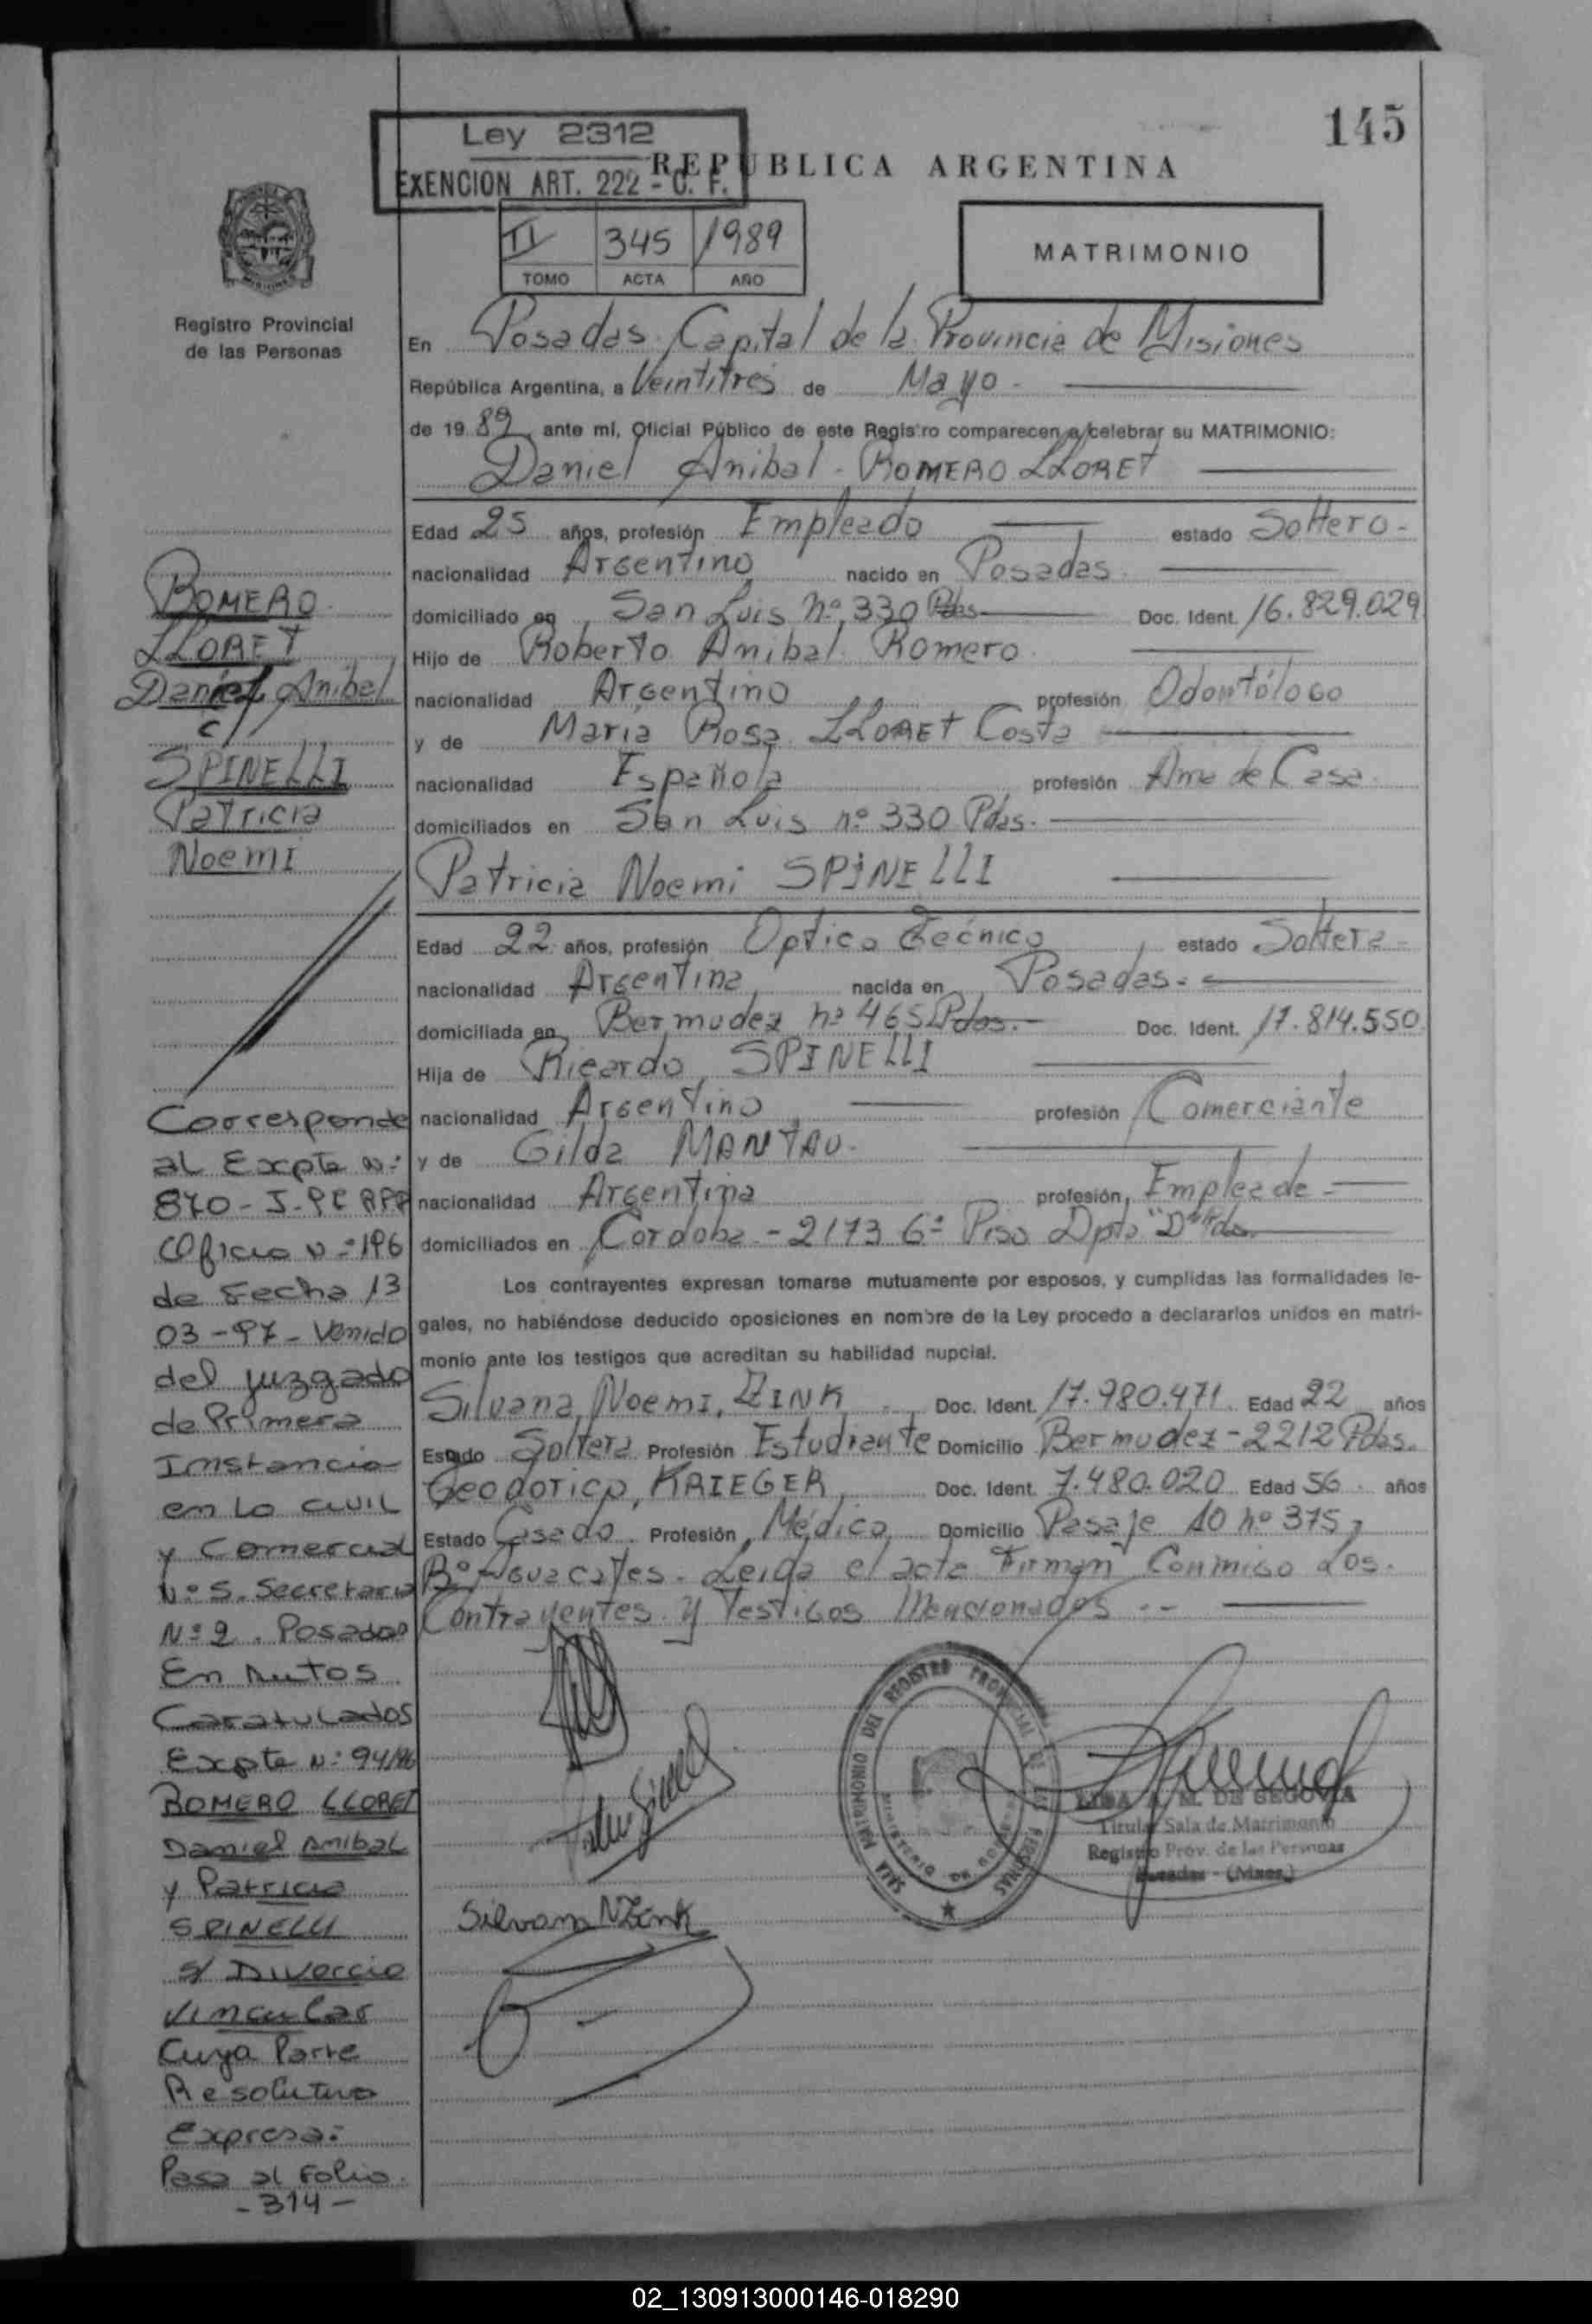 145
Ley 2312
EXENCION ART. 222 - C. F.
REPUBLICA ARGENTINA
II 345 1989
TOMO ACTA AÑO
MATRIMONIO
Registro Provincial
de las Personas
En Posadas Capital de la Provincia de Misiones
República Argentina, a Veintitres de Mayo -
de 19 89 ante mí, Oficial Público de este Registro comparecen a celebrar su MATRIMONIO:
Daniel Anibal - ROMERO LLORET
Edad 25 años, profesión Empleado estado Soltero -
nacionalidad Argentino nacido en Posadas
domiciliado en San Luis nº 330 Pdas Doc. Ident. 16.829.029
Hijo de Roberto Anibal Romero
nacionalidad Argentino profesión Odontólogo
y de María Rosa LLORET Costa
nacionalidad Española profesión Ama de Casa
domiciliados en San Luis nº 330 Pdas.
Patricia Noemi SPINELLI
Edad 22 años, profesión Optico Técnico estado Soltera
nacionalidad Argentina nacida en Posadas -
domiciliada en Bermudez nº 465 Pdas. Doc. Ident. 17.814.550
Hija de Ricardo SPINELLI
nacionalidad Argentino profesión Comerciante
y de Gilda
nacionalidad Argentina profesión Empleada -
domiciliados en Cordoba - 2173 6º Piso Dpto "D" Pdas.
Los contrayentes expresan tomarse mutuamente por esposos, y cumplidas las formalidades le-
gales, no habiéndose deducido oposiciones en nombre de la Ley procedo a declararlos unidos en matri-
monio ante los testigos que acreditan su habilidad nupcial.
Silvana Noemi, ZINK Doc. Ident. 17.980.471 Edad 22 años
Estado Soltera Profesión Estudiante Domicilio Bermudez - 2212 Pdas.
KRIEGER Doc. Ident. 7.480.020 Edad 56 años
Estado Casado Profesión Médico Domicilio Pasaje 10 nº 375,
Bº Aguacates. Leida el acta Firman Conmigo Los
Contrayentes y Testigos Mencionados --
Silvana N Zink
SALA MATRIMONIO DEL REGISTRO PROVINCIAL DE LAS PERSONAS
MINISTERIO DE GOBIERNO
LIDA A. M. DE SEGOVIA
Titular Sala de Matrimonio
Registro Prov. de las Personas
Posadas - (Mnes.)
ROMERO
LLORET
Daniel Anibal
c/
SPINELLI
Patricia
Noemi
Corresponde
al Expte nº:
870 - J - 96 RPP
Oficio nº 196
de Fecha 13
03 - 97 - Venido
del Juzgado
de Primera
Instancia
en Lo Civil
y Comercial
Nº 5. Secretaria
Nº 2. Posadas
En Autos
Caratulados
Expte Nº: 94/96
ROMERO LLORET
Daniel Anibal
y Patricia
SPINELLI
s/ Divorcio
Vincular
Cuya Parte
Resolutiva
Expresa:
Pasa al Folio
- 314 -
02_130913000146-018290